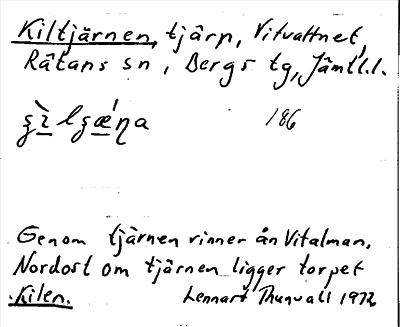 Kiltjärnen, tjärn, Vitvattnet,
Rätans sn, Bergs tg, Jämtl.l.
186
Genom tjärnen rinner ån Vitalman.
Nordost om tjärnen ligger torpet
Kilen. Lennart Thunvall 1972